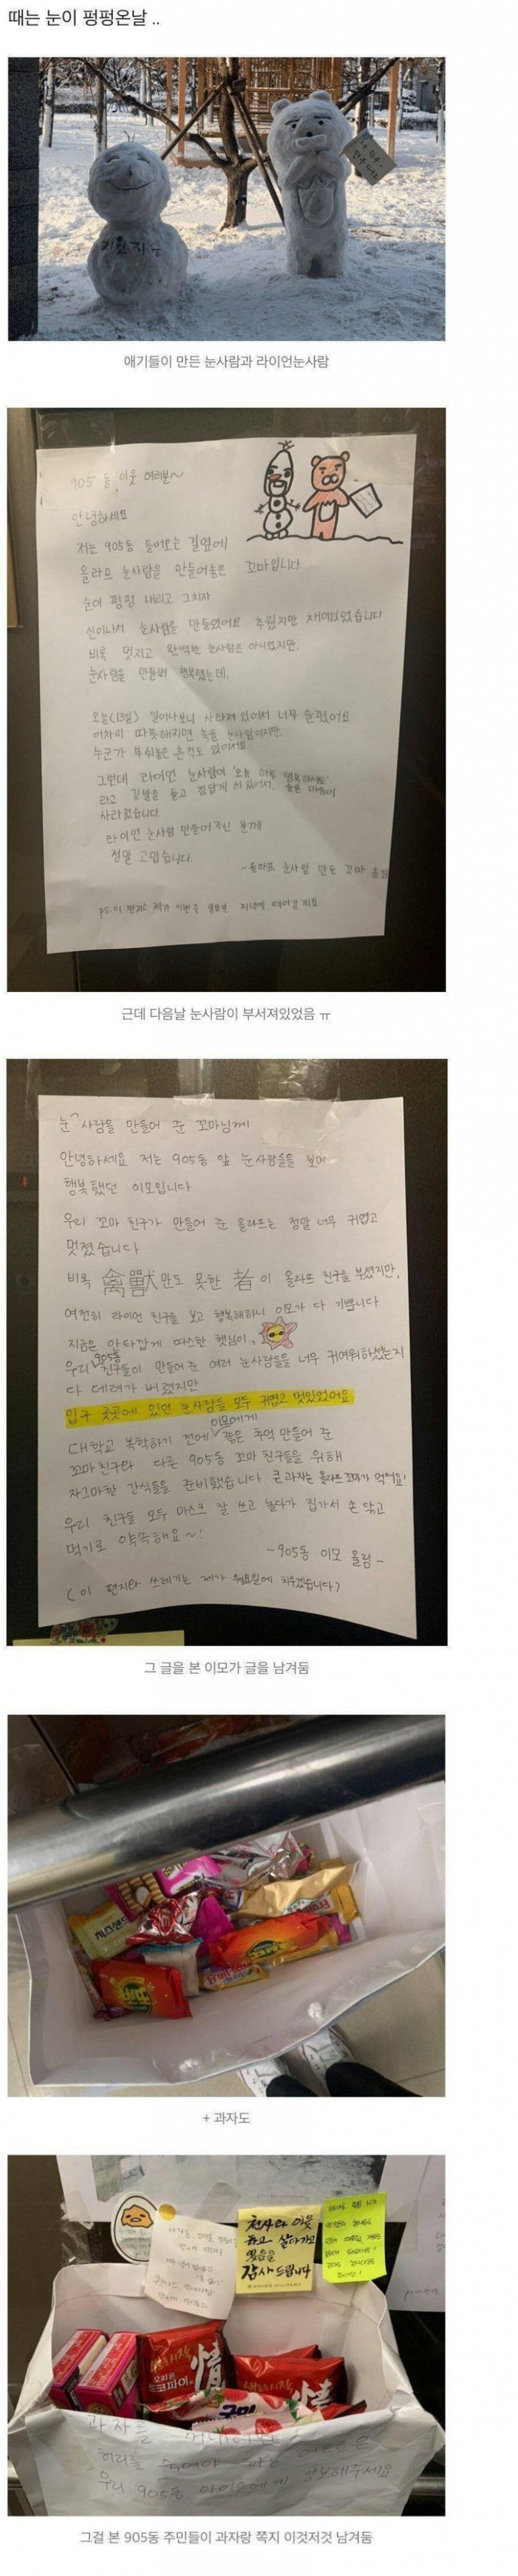 때는 눈이 펑펑온날 ..
지원지수
애기들이 만든 눈사람과 라이언눈사람
905동 이웃 여러분~
안녕하세요
저는 905동 들어오는 길옆에
올라프 눈사람을 만들어놓은 꼬마입니다.
눈이 펑펑 내리고 그치자
신이나서 눈사람을 만들었어요 추웠지만 재미있었습니다
비록 멋지고 완벽한 눈사람은 아니었지만,
눈사람을 만들며 행복했는데,
오늘(13일) 일어나보니 사라져 있어서 너무 슬펐어요
어차피 따뜻해지면 녹을 눈사람이지만.
누군가 부숴놓은 흔적도 있어서요
그런데 라이언 눈사람이 '오늘 하루 행복하세요'
라고 깃발을 들고 정답게 서 있어서, 슬픈 마음이
사라졌습니다.
라이언 눈사람 만들어주신 분께
정말 고맙습니다.
-올라프 눈사람 만든 꼬마 올림
ps. 이 편지는 제가 이번주 일요일 저녁에 떼어갈게요.
근데 다음날 눈사람이 부서져있었음 ㅠ
눈사람을 만들어 준 꼬마님께
안녕하세요 저는 905동 앞 눈사람들을 보며
행복했던 이모입니다
우리 꼬마 친구가 만들어 준 올라프는 정말 너무 귀엽고
멋졌습니다
비록 禽獸만도 못한 者이 올라프 친구를 부셨지만,
여전히 라이언 친구를 보고 행복해하니 이모가 다 기쁩니다
지금은 안타깝게 따스한 햇님이,
우리 905동 친구들이 만들어준 여러 눈사람들을 너무 귀여워하셨는지
다 데려가 버렸지만
입구 곳곳에 있던 눈사람들 모두 귀엽고 멋있었어요
대학교 복학하기 전에 이모에게 좋은 추억 만들어 준
꼬마친구와 다른 905동 꼬마 친구들을 위해
자그마한 간식들을 준비했습니다 큰과자는 올라프꼬마가 먹어요!
우리 친구들 모두 마스크 잘 쓰고 놀다가 집가서 손 닦고
먹기로 약속해요~!
-905동 이모 올림-
(이 편지와 쓰레기는 제가 월요일에 치우겠습니다)
그 글을 본 이모가 글을 남겨둠
+ 과자도
천사와 이웃
하고 살아가고
있음을
감사드립니다
초코파이 情
구미
과자를
허리를 숙여야 하는 어른은
우리 905동 아이들에게 양보해주세요
그걸 본 905동 주민들이 과자랑 쪽지 이것저것 남겨둠